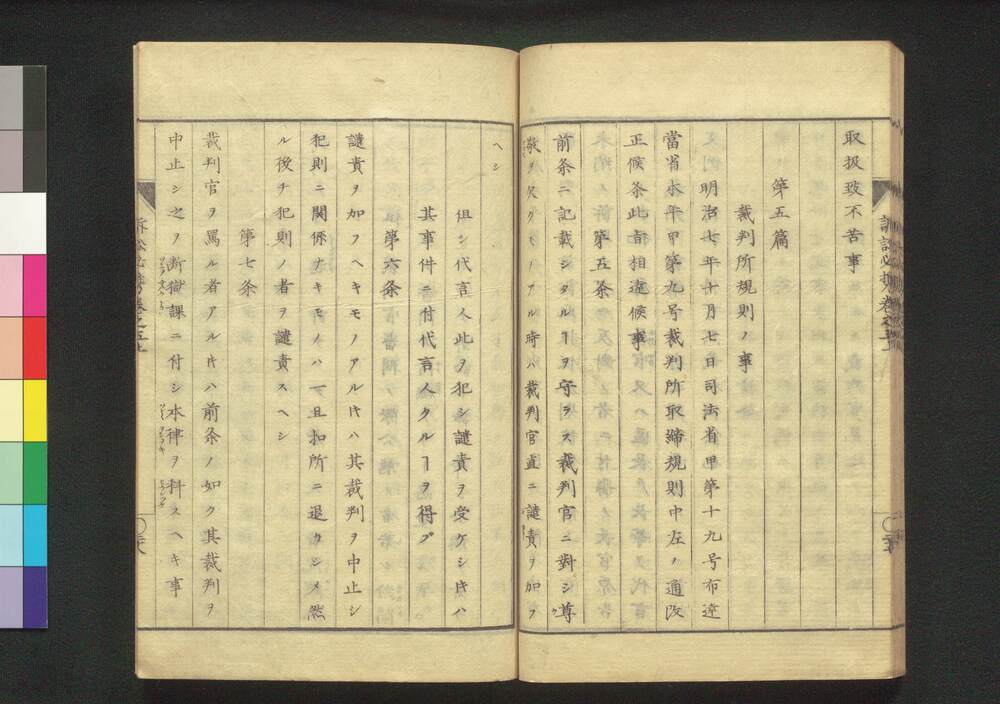 取扱致不苦事
第五篇
裁判所規則ノ事
明治七年十月七日司法省甲第十九号布達
當省本年甲第九号裁判所取締規則中左ノ通改
正候条此旨相達候事
第五条
前条ニ記載シタルヿヲ守ラス裁判官ニ對シ尊
敬ヲ欠クヿアル時ハ裁判官直ニ譴責ヲ加フ
ヘシ
但シ代言人此ヲ犯シ譴責ヲ受ケシ𪜈ハ
其事件ニ付代言人タルヿヲ得ス
第六条
譴責ヲ加フヘキモノアル𪜈ハ其裁判ヲ中止シ
犯則ニ関係ナキモノハ一旦扣所ニ退カシメ然
ル後チ犯則ノ者ヲ譴責スヘシ
第七条
裁判官ヲ罵ル者アル𪜈ハ前条ノ如ク其裁判ヲ
中止シ之ヲ断獄課ニ付シ本律ヲ科スヘキ事